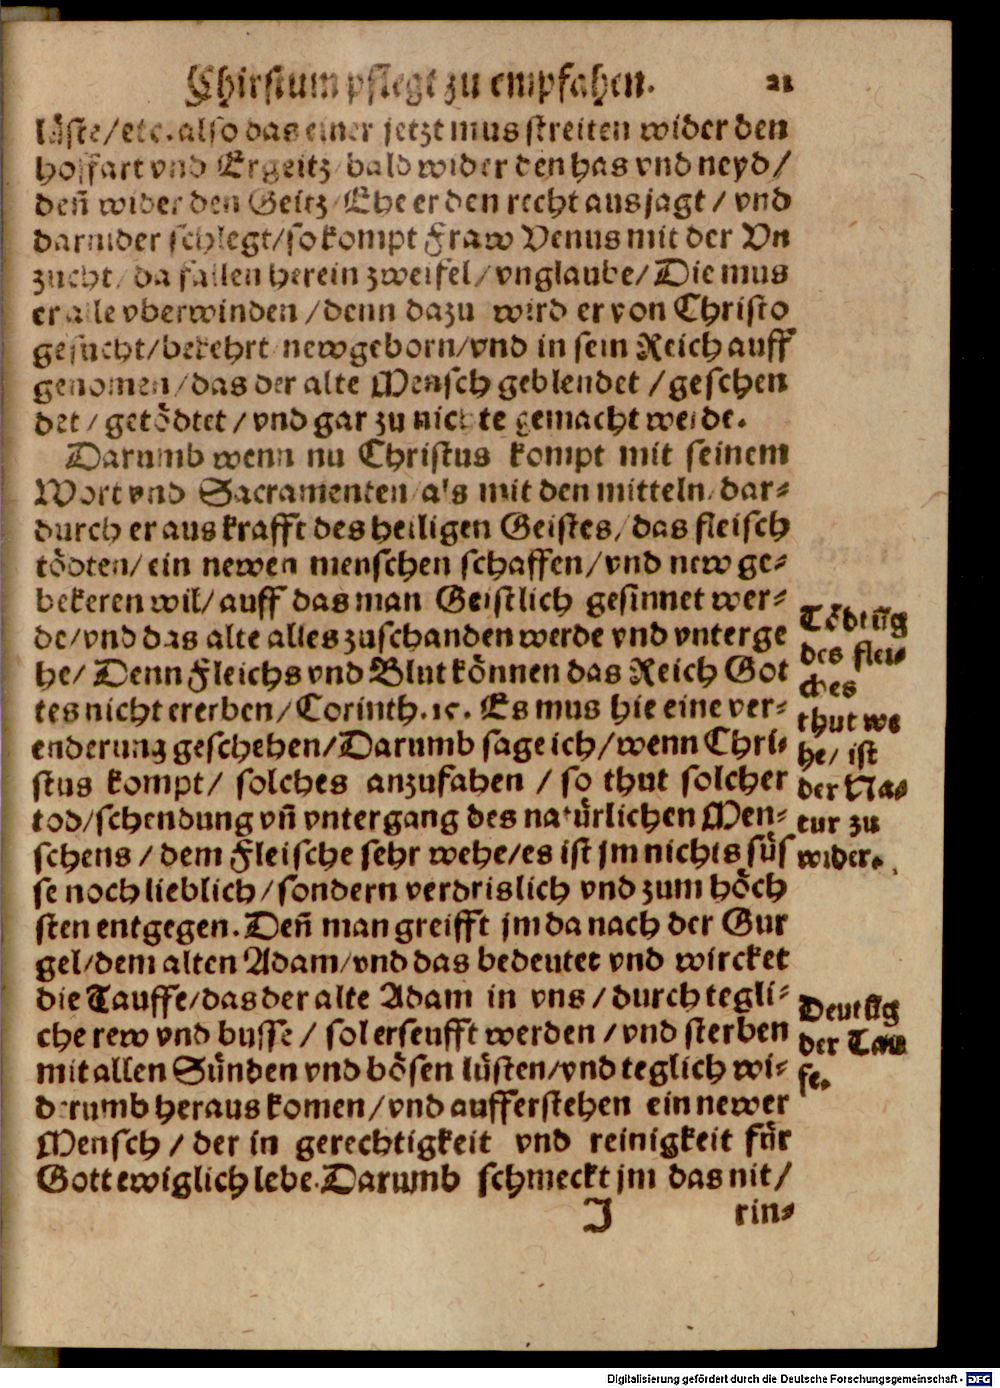 Chirstum pflegt zu empfahen. 21
lüste/etc. also das einer jetzt mus streiten wider den
hoffart vnd Ergeitz/bald wider den has vnd neyd/
deñ wider den Geitz/Ehe er den recht ausjagt/vnd
darnider schlegt/so kompt Fraw Venus mit der Vn
zucht/da fallen herein zweifel/vnglaube/Die mus
er alle vberwinden/denn dazu wird er von Christo
gesucht/bekehrt newgeborn/vnd in sein Reich auff
genomen/das der alte Mensch geblendet/geschen
det/getödtet/vnd gar zu nichte gemacht werde.
Darumb wenn nu Christus kompt mit seinem
Wort vnd Sacramenten/als mit den mitteln/dar-
durch er aus krafft des heiligen Geistes/das fleisch
tödten/ein newen menschen schaffen/vnd new ge-
bekeren wil/auff das man Geistlich gesinnet wer-
de/vnd das alte alles zuschanden werde vnd vnterge
he/Denn Fleichs vnd Blut können das Reich Got
tes nicht ererben/Corinth.15. Es mus hie eine ver-
enderung geschehen/Darumb sage ich/wenn Chri-
stus kompt/solches anzufahen/so thut solcher
tod/schendung vñ vntergang des natürlichen Men-
schens/dem Fleische sehr wehe/es ist jm nichts süs
se noch lieblich/sondern verdrislich vnd zum höch
sten entgegen. Deñ man greifft jm da nach der Gur
gel/dem alten Adam/vnd das bedeutet vnd wircket
die Tauffe/das der alte Adam in vns/durch tegli-
che rew vnd busse/sol erseufft werden/vnd sterben
mit allen Sünden vnd bösen lüsten/vnd teglich wi-
derumb heraus komen/vnd aufferstehen ein newer
Mensch/der in gerechtigkeit vnd reinigkeit für
Gott ewiglich lebe. Darumb schmeckt jm das nit/
J rin-
Tödtũg
des flei-
ches
thut we
he/ist
der Na-
tur zu
wider.
Deutũg
der Tau
fe.
Digitalisierung gefördert durch die Deutsche Forschungsgemeinschaft - DFG